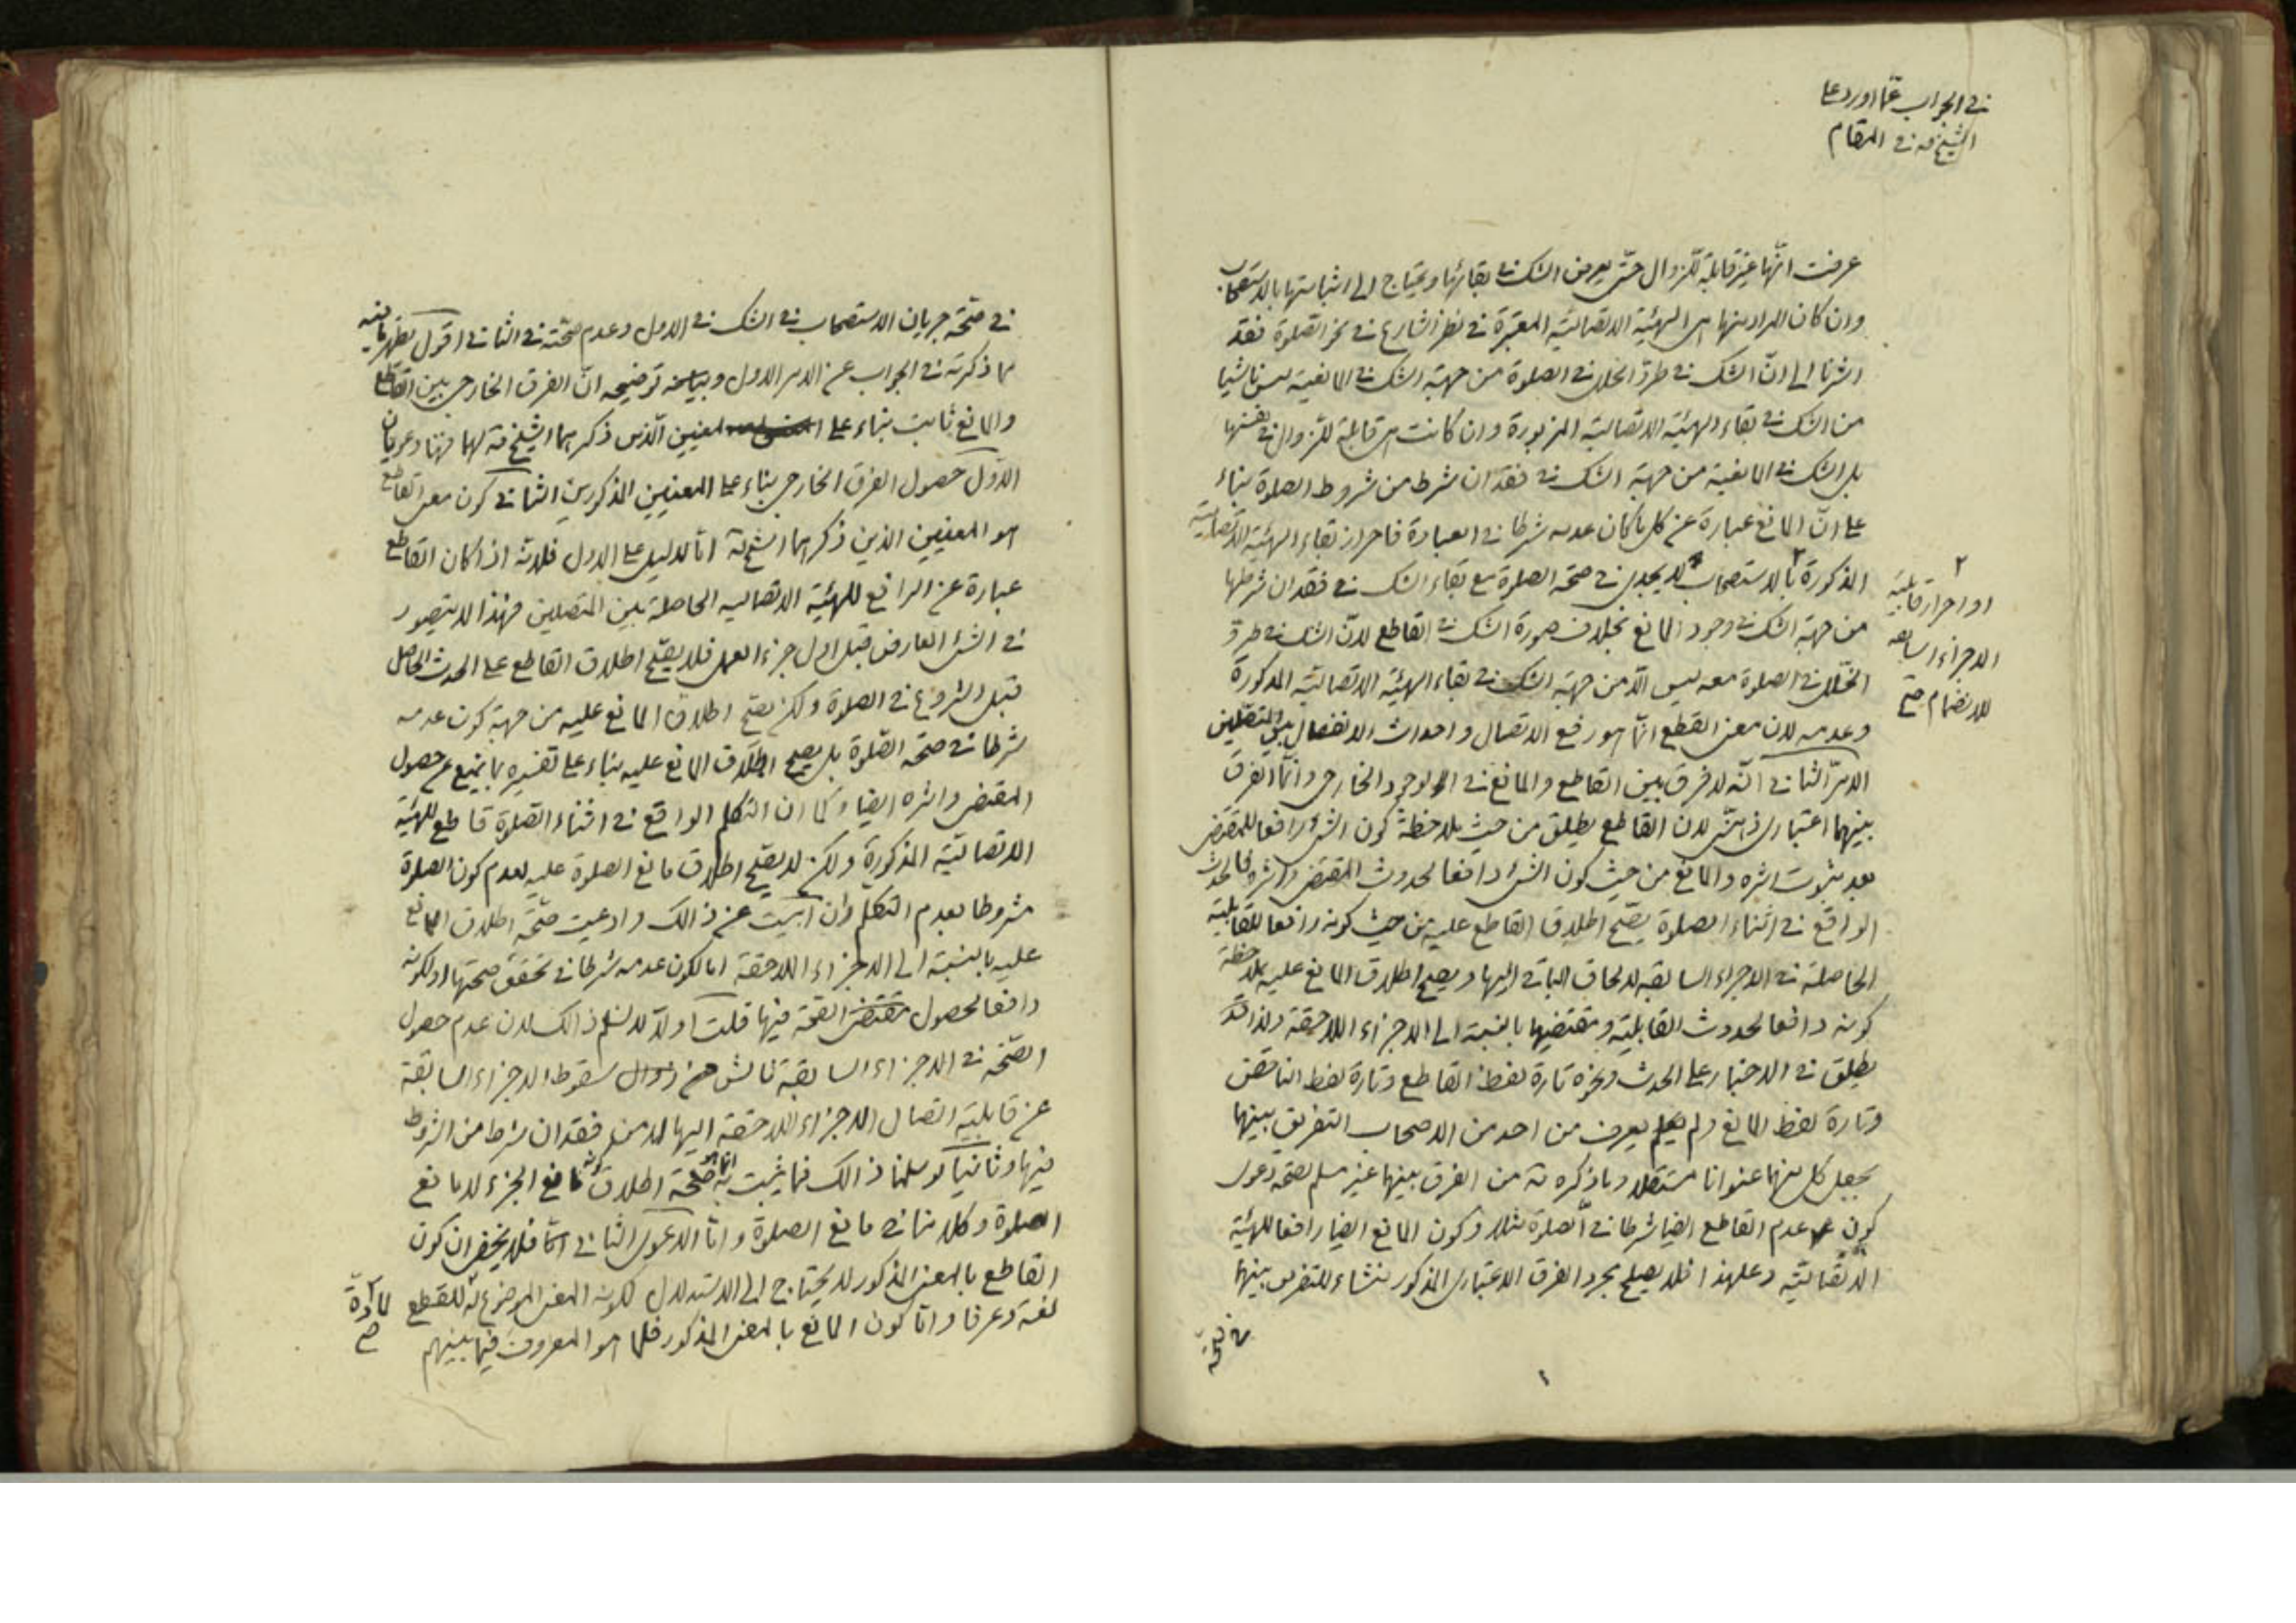 في الجواب عما اورد على
الشيخ قه في المقام
عرفت انّها غير قابلة للزوال حتّى يعرض الشك في بقائها ويحتاج الى اثباتها بالاستصحاب
وان كان المراد منها هي الهيئية الاتصالية المعتبرة في نظر الشارع في نحو الصلوة فقد
اشرنا الى انّ الشك في طروّ الخلل في الصلوة من جهة الشك في المانعية ليس ناشيا
من الشك في بقاء الهيئية الاتصالية المزبورة وان كانت هي قابلة للزوال في نفسها
بل الشك في المانعية من جهة الشك في فقدان شرط من شروط الصلوة بناء
على انّ المانع عبارة عن كل ما كان عدمه شرطا في العبادة فاحراز بقاء الهيئية الاتصالية
المذكورة بالاستصحاب لا يجدي في صحة الصلوة مع بقاء الشك في فقدان شرطها
او احراز قابلية
الاجزاء السابقه
للانضمام صح
من جهة الشك في وجود المانع بخلاف صورة الشك في القاطع لانّ الشك في طروّ
الخلل في الصلوة معه ليس الّا من جهة الشك في بقاء الهيئية الاتصالية المذكورة
وعدمه لان معنى القطع انّما هو رفع الاتصال واحداث الانفصال بين المتصلين
الامر الثاني انّه لا فرق بين القاطع والمانع في الوجود الخارجي وانّما الفرق
بينهما اعتباري لان القاطع يطلق من حيث ملاحظة كون الشئ رافعا للمقتضى
بعد ثبوت اثره والمانع من حيث كون الشئ دافعا لحدوث المقتضى واثره فالحدث
الواقع في اثناء الصلوة يصّح اطلاق القاطع عليه من حيث كونه رافعا للقابلية
الحاصلة في الاجزاء السابقه لالحاق الباقي اليها ويصح اطلاق المانع عليه بملاحظة
كونه دافعا لحدوث القابلية ومقتضيها بالنسبة الى الاجزاء اللاحقة ولذا قد
يطلق في الاخبار على الحدث ونحوه تارة لفظ القاطع وتارة لفظ الناقض
وتارة لفظ المانع ولم يعرف من احد من الاصحاب التفريق بينهما
بجعل كل منهما عنوانا مستقلا وما ذكره قه من الفرق بينهما غير مسلم لصحة دعوى
كون عدم القاطع ايضا شرطا في الصلوة مثلا وكون المانع ايضا رافعا للهيئية
الاتصالية وعلى هذا فلا يصلح مجرد الفرق الاعتباري المذكور منشاء للتفريق بينهما
في صحّة
في صحّة جريان الاستصحاب في الشك في الاول وعدم صحّته في الثاني اقول يظهر ما فيه
مما ذكرته في الجواب عن الامر الاول وبيانه توضيحه انّ الفرق الخارجي بين القاطع
والمانع ثابت بناء على المعنيين الّذين ذكرهما الشيخ قه لهما فهنا دعويان
الاوّل حصول الفرق الخارجي بناء على المعنيين المذكورين الثاني كون معنى القاطع
هو المعنيين الذين ذكرهما الشيخ قه امّا الدليل على الاول فلانّه اذا كان القاطع
عبارة عن الرافع للهيئية الاتصاليه الحاصلة بين المتصلين فهذا لا يتصور
في الشئ العارض قبل اول جزء العمل فلا يصّح اطلاق القاطع على الحدث الحاصل
قبل الشروع في الصلوة ولكن يصّح اطلاق المانع عليه من جهة كون عدمه
شرطا في صحّة الصّلوة بل يصح اطلاق المانع عليه بناء على تفسيره بما يمنع عن حصول
المقتضى واثره ايضا وكما ان التكلم الواقع في اثناء الصلوة قاطع للهيئية
الاتصاليّة المذكورة ولكن لا يصّح اطلاق مانع الصلوة عليه لعدم كون الصلوة
مشروطا بعدم التكلم وان ابيت عن ذالك وادعيت صحّة اطلاق المانع
عليه بالنسبة الى الاجزاء اللاحقة اما لكون عدمه شرطا في تحقق صحتها او لكونه
دافعا لحصول مقتضى الصّحة فيها قلت اولا لا نسلم ذالك لان عدم حصول
الصّحة في الاجزاء السابقة ناش من سقوط الاجزاء السابقة
عن قابلية اتصال الاجزاء اللاحقة اليها لا من فقدان شرط من الشروط
فيها وثانيا لو سلمنا ذالك فما يثبت به انما هو صّحة اطلاق مانع الجزء لا مانع
الصلوة وكلامنا في مانع الصلوة وامّا الدعوى الثاني امّا فلا يخفى ان كون
القاطع بالمعنى المذكور لا يحتاج الى الاستدلال لكونه المعنى الموضوع له للقطع
لمادة
صح
لغة وعرفا وامّا كون المانع بالمعنى المذكور فلما هو المعروف فيما بينهم